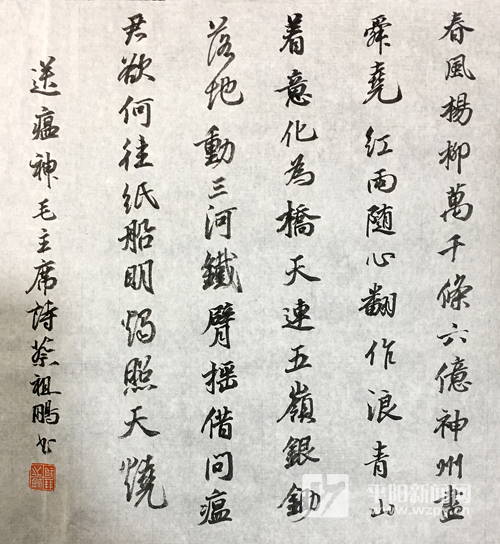 春風楊柳萬千條六億神州盡
舜堯紅雨随心翻作浪青山
着意化為橋天連五嶺銀鋤
落地動三河鐵臂摇借問瘟
君欲何往紙船明燭照天燒
送瘟神毛主席詩蔡祖鵬书
平阳新闻网